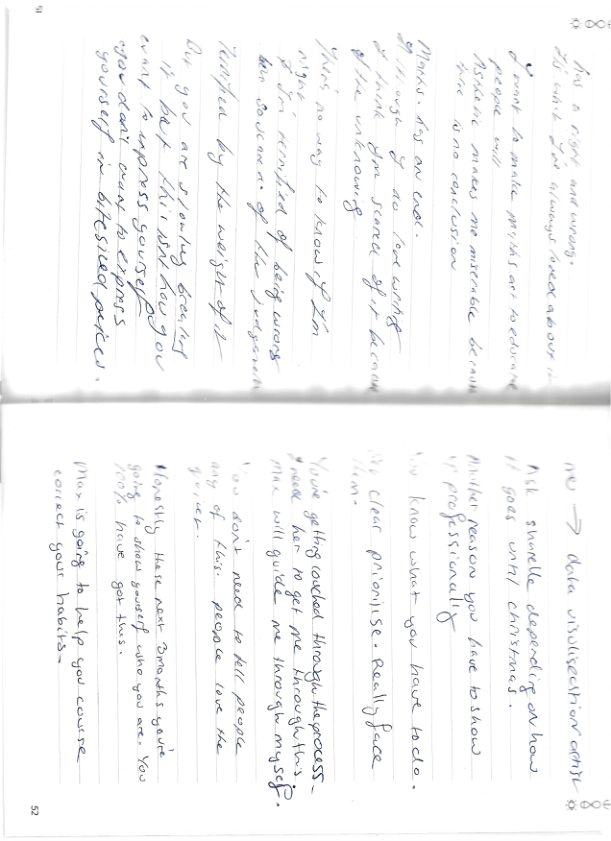 51
has a right and wrong.
I want to make maths art to educate
people will
Asthetic makes me miserable because
there is no conclusion
Maths. has an end.
Although I do love writing
I think I'm scared of it because
of the unknowing
There's no way to know if I'm
right
& I'm terrified of being wrong
of the judgement
Terrified by the weight of it
But you are slowing breaking
it but this isnt how you
want to express yourself
you don't want to express
yourself in bitesized peices.
me → data visulisation artist
Ask sharelle depending on how
it goes until christmas.
Another reason you have to show
up professionally
You know what you have to do.
clear prioritise. Really face
them.
You're getting coached through the process.
I need her to get me through this.
Max will guide me through myself.
You don't need to tell people
any of this. people love the
Honestly these next 3 months you're
going to show yourself who you are. You
100% have got this.
Max is going to help you course
correct your habits.
52